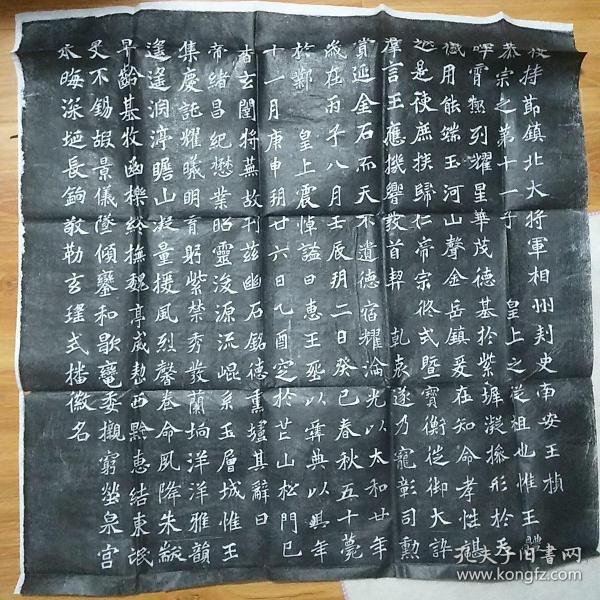 使持節鎮北大將軍相州刺史南安王楨
恭宗之第十一子 皇上之從祖也惟王
暉霄極列耀星華茂德基於紫墀凝操形於天
感用能端玉河山聲金岳鎮爰在知命孝性諶
越是使庶族歸仁帝宗攸式暨寶衡徙御大訊
羣言王應機響發首契 乾衷遂乃寵彰司勳
賞延金石而天不遺德宿耀淪光以太和廿年
歲在丙子八月壬辰朔二日癸巳春秋五十薨
於鄴 皇上震悼諡曰惠王葬以彝典以其年
十一月庚申朔廿六日乙酉窆於芒山松門已
杳玄闥將蕪故刊茲幽石銘德熏壚其辭曰
帝緒昌紀懋業昭靈浚源流崐系玉層城惟王
集慶託耀曦明育躬紫禁秀發蘭坰洋洋雅韻
遙遙淵渟瞻山凝量援風烈馨卷命夙降朱黻
早齡基牧豳櫟終撫魏亭威整西黔惠結東氓
旻不錫嘏景儀墜傾鑾和歇轡委櫬窮塋泉宮
永晦深埏長鐍敬勒玄瑤式播徽名
孔夫子旧書网
www.kongfz.com